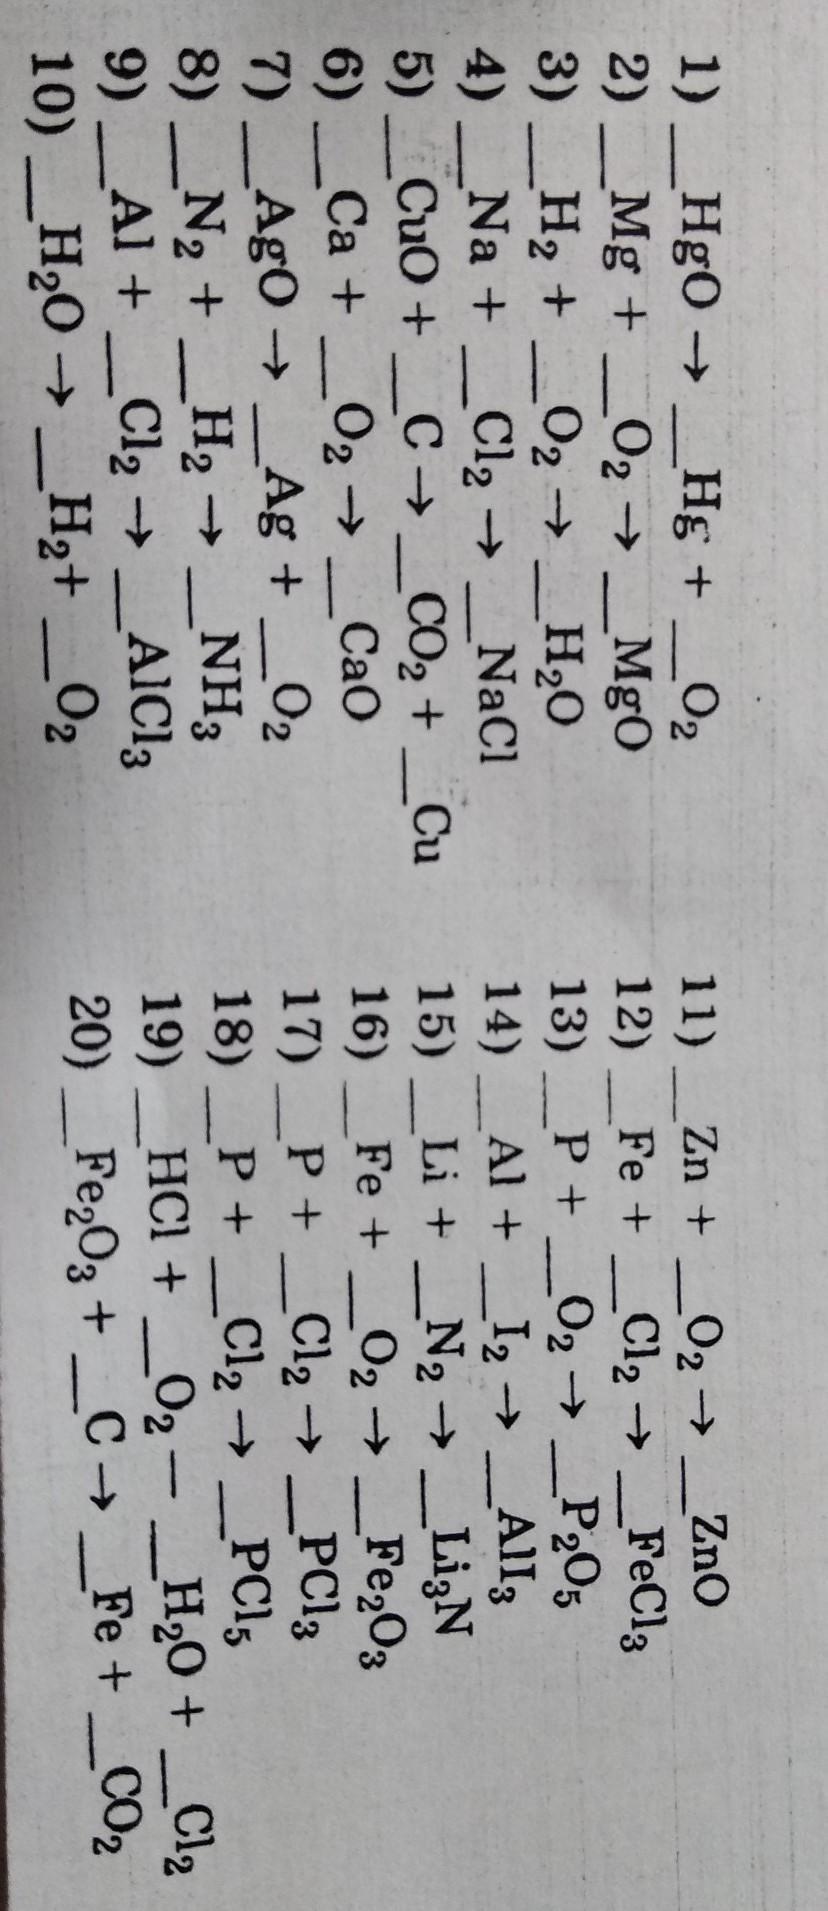 1) __HgO → __Hg + __O₂
2) __Mg + __O₂ → __MgO
3) __H₂ + __O₂ → __H₂O
4) __Na + __Cl₂ → __NaCl
5) __CuO + __C → __CO₂ + __Cu
6) __Ca + __O₂ → __CaO
7) __AgO → __Ag + __O₂
8) __N₂ + __H₂ → __NH₃
9) __Al + __Cl₂ → __AlCl₃
10) __H₂O → __H₂+ __O₂
11) __Zn + __O₂ → __ZnO
12) __Fe + __Cl₂ → __FeCl₃
13) __P + __O₂ → __P₂O₅
14) __Al + __I₂ → __AlI₃
15) __Li + __N₂ → __Li₃N
16) __Fe + __O₂ → __Fe₂O₃
17) __P + __Cl₂ → __PCl₃
18) __P + __Cl₂ → __PCl₅
19) __HCl + __O₂ — __H₂O + __Cl₂
20) __Fe₂O₃ + __C → __Fe + __CO₂